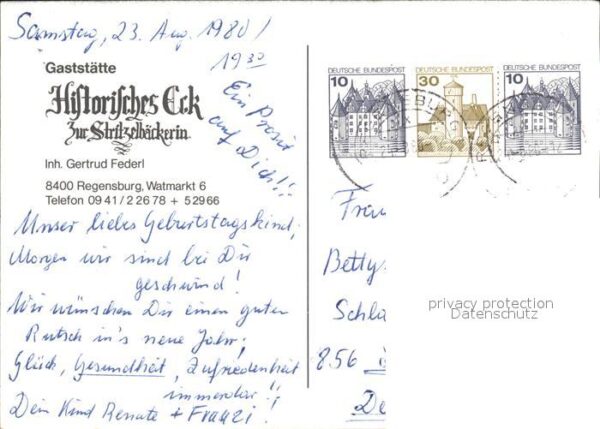 Samstag, 23. Aug. 1980 /
19 30
Ein Prosit
auf Dich!!
Gaststätte
Historisches Eck
Zur Stritzelbäckerin
Inh. Gertrud Federl
8400 Regensburg, Watmarkt 6
Telefon 09 41 / 2 26 78 + 5 29 66
Unser liebes Geburtstagskind,
Morgen wir sind bei Dir
geschwind!
Wir wünschen Dir einen guten
Rutsch in's neue Jahr,
Glück, Gesundheit, Zufriedenheit
immerdar!!
Dein Kind Renate + Franzi!
DEUTSCHE BUNDESPOST
10
DEUTSCHE BUNDESPOST
30
DEUTSCHE BUNDESPOST
10
Frau
Betty
Schla
856
privacy protection
Datenschutz